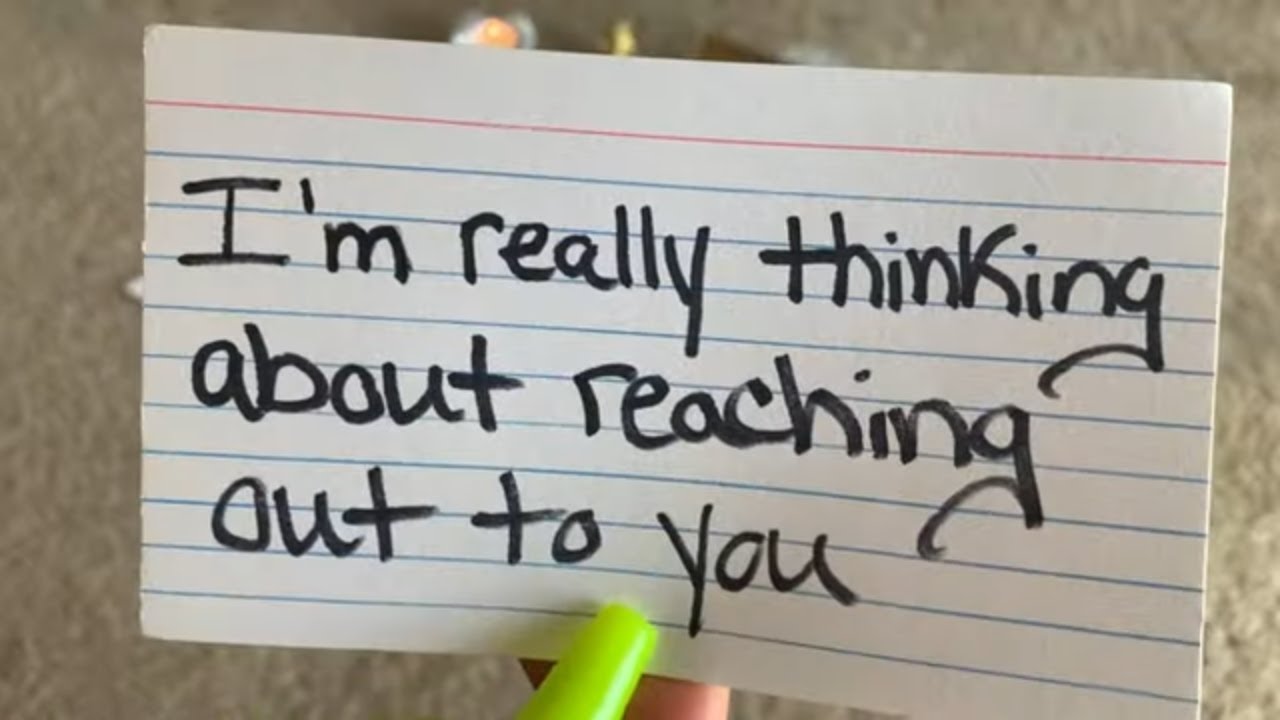 I'm really thinking
about reaching
out to you